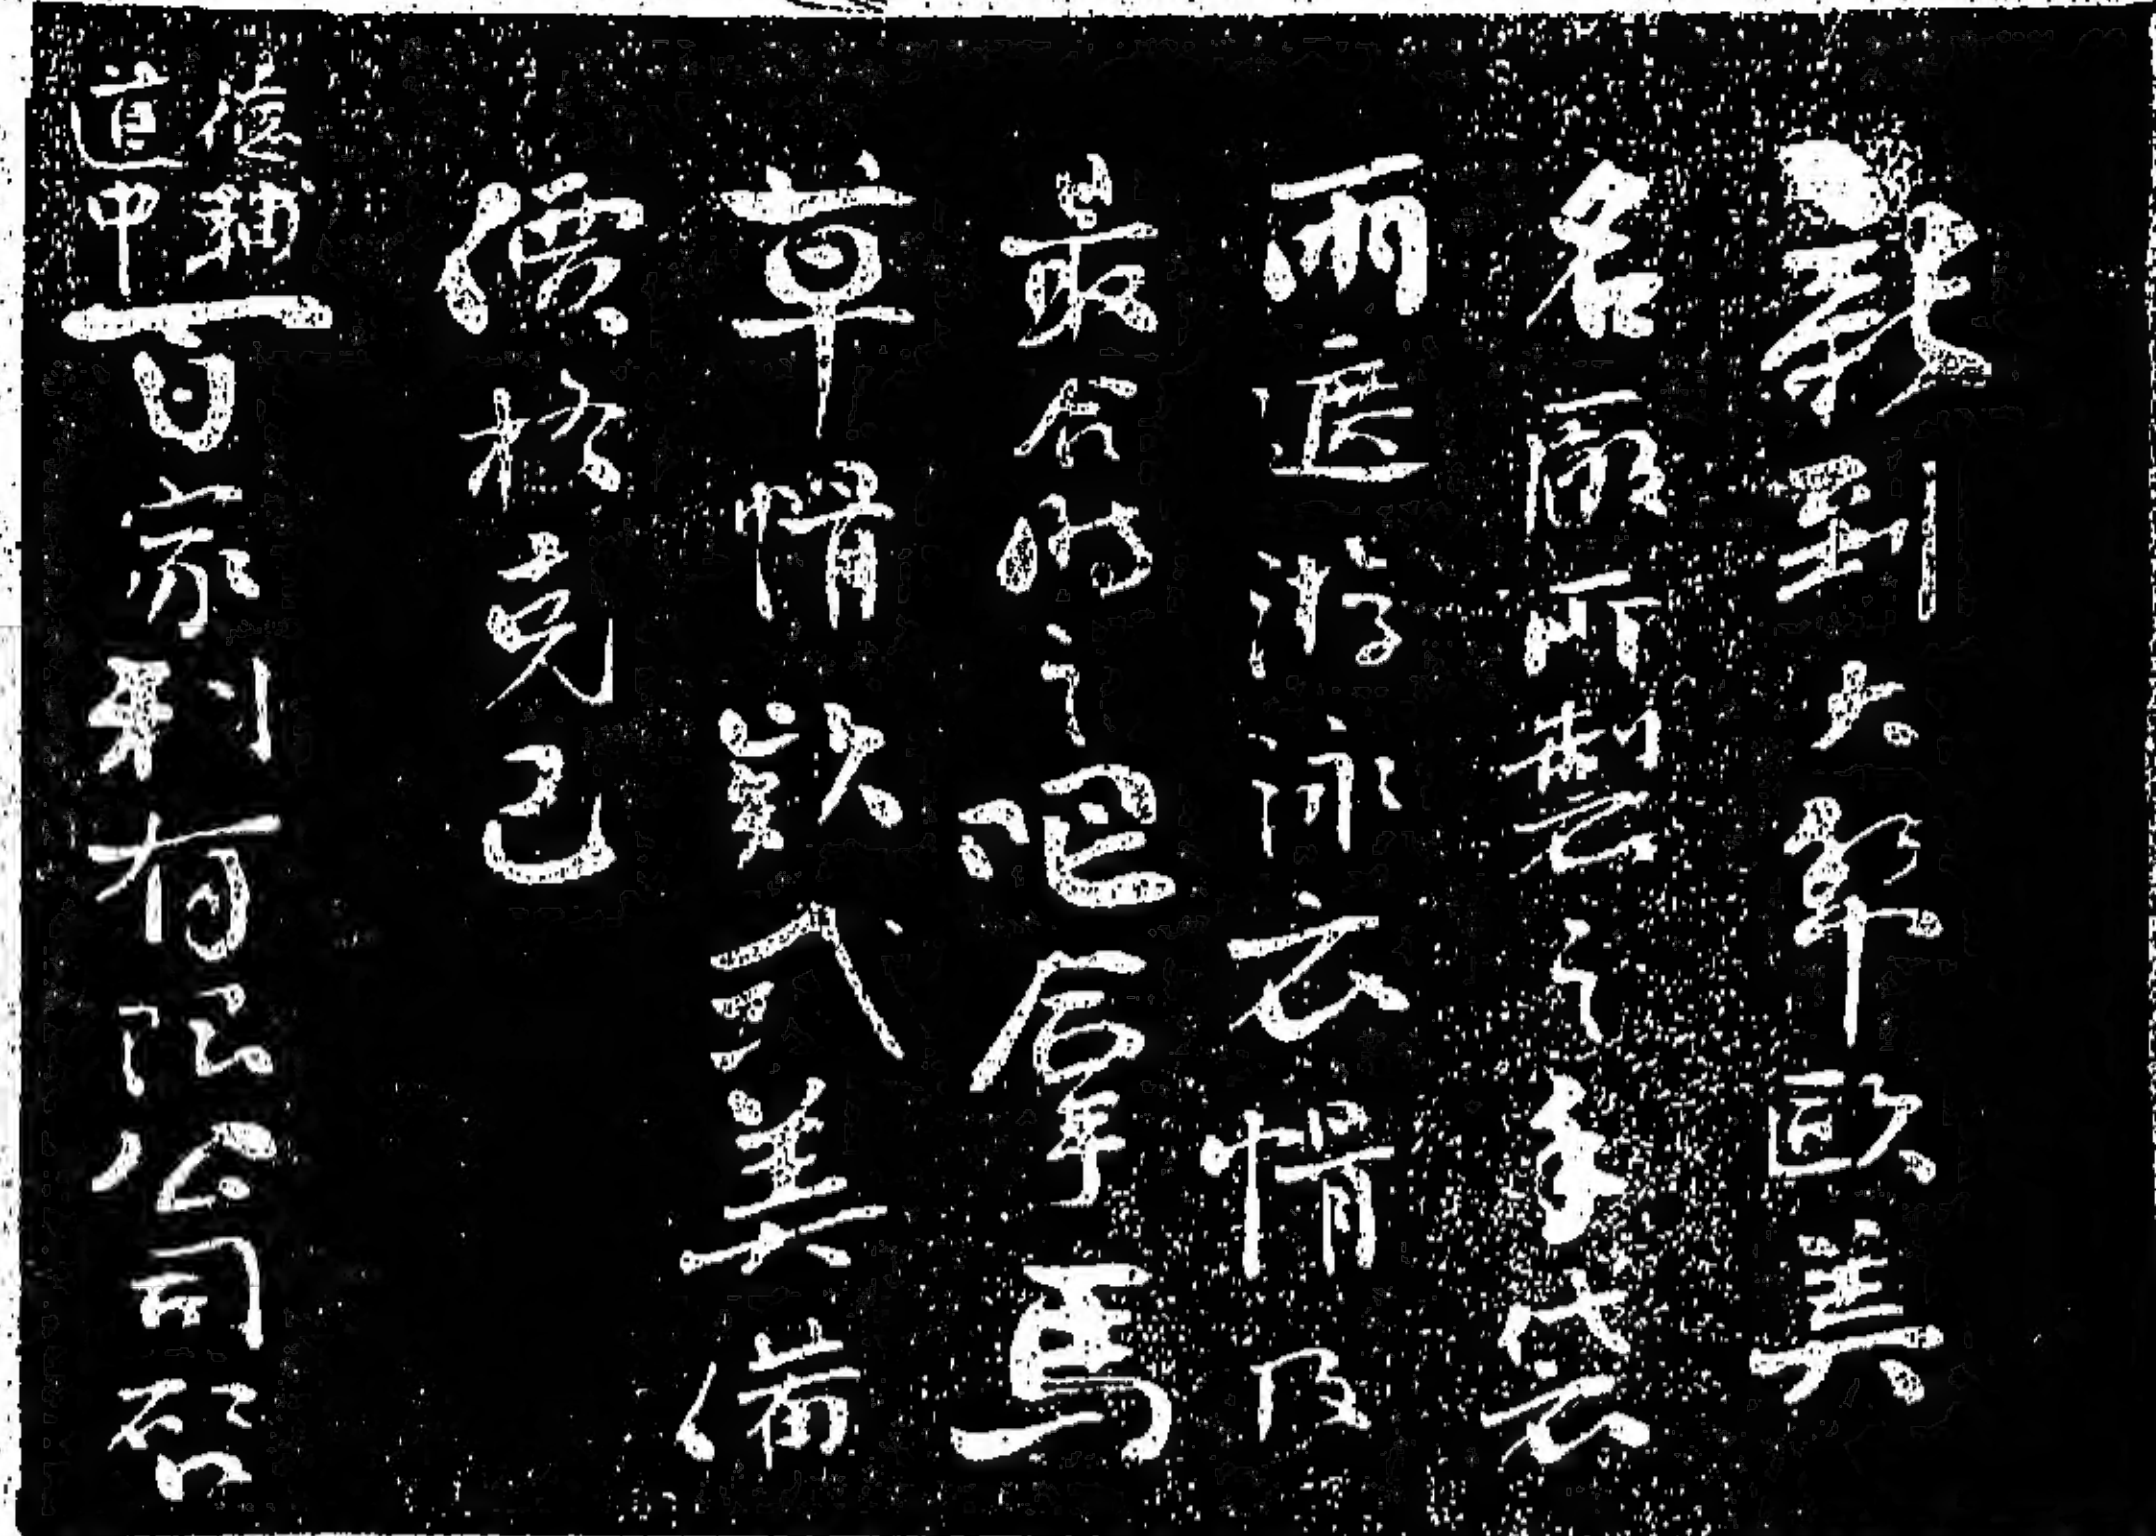 新到大幫歐美
名廠所製之手袋
雨遮游泳衣帽及
最合時之吧拿馬
草帽欵式美備
價格克己
德輔道中百家利有限公司啓